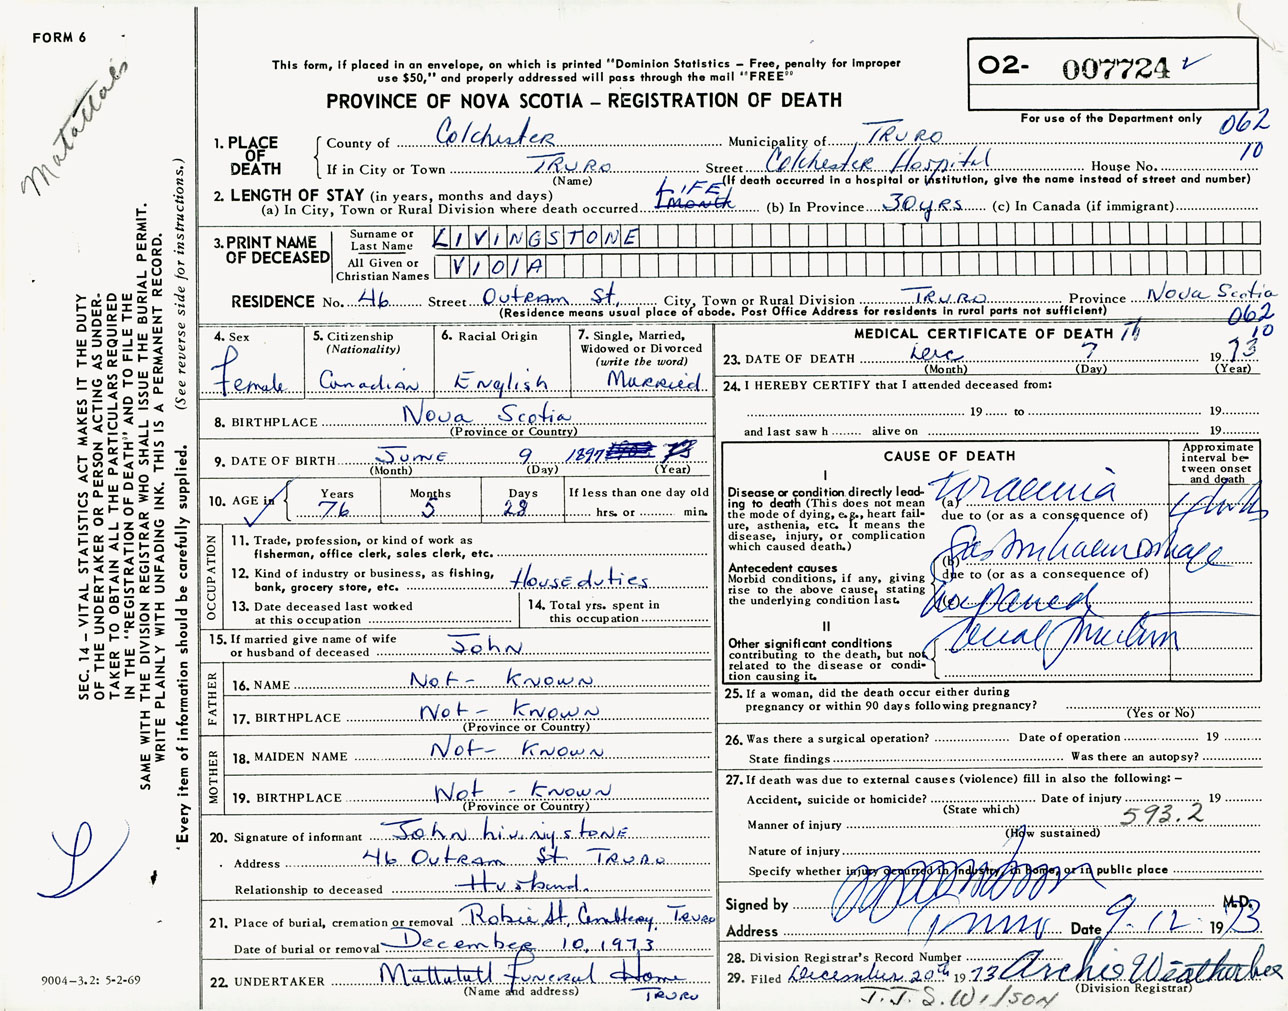 FORM 6
Matattal's
This form, if placed in an envelope, on which is printed "Dominion Statistics – Free, penalty for improper
use $50," and properly addressed will pass through the mail "FREE"
PROVINCE OF NOVA SCOTIA – REGISTRATION OF DEATH
O2- 007724
For use of the Department only
062
10
1. PLACE OF DEATH
County of Colchester Municipality of TRURO
If in City or Town TRURO Street Colchester Hospital House No.
(Name) (If death occurred in a hospital or institution, give the name instead of street and number)
2. LENGTH OF STAY (in years, months and days)
(a) In City, Town or Rural Division where death occurred LIFE 1 month (b) In Province 30 yrs (c) In Canada (if immigrant)
3. PRINT NAME OF DECEASED
Surname or Last Name LIVINGSTONE
All Given or Christian Names VIOlA
RESIDENCE No. 46 Street Outram St. City, Town or Rural Division TRURO Province Nova Scotia
(Residence means usual place of abode. Post Office Address for residents in rural parts not sufficient)
062
10
4. Sex Female
5. Citizenship (Nationality) Canadian
6. Racial Origin English
7. Single, Married, Widowed or Divorced (write the word) Married
8. BIRTHPLACE Nova Scotia
(Province or Country)
9. DATE OF BIRTH June 9 1897 73
(Month) (Day) (Year)
10. AGE in Years 76 Months 5 Days 28 If less than one day old
hrs. or min.
OCCUPATION
11. Trade, profession, or kind of work as
fisherman, office clerk, sales clerk, etc.
12. Kind of industry or business, as fishing,
bank, grocery store, etc. House duties
13. Date deceased last worked
at this occupation
14. Total yrs. spent in
this occupation
15. If married give name of wife
or husband of deceased John
FATHER
16. NAME Not - Known
17. BIRTHPLACE Not - Known
(Province or Country)
MOTHER
18. MAIDEN NAME Not - Known
19. BIRTHPLACE Not - Known
(Province or Country)
20. Signature of informant John Livingstone
Address 46 Outram St Truro
Relationship to deceased Husband.
21. Place of burial, cremation or removal Robie St. Cemetery, Truro
Date of burial or removal December 10, 1973
22. UNDERTAKER Mattatall Funeral Home
(Name and address) TRURO
MEDICAL CERTIFICATE OF DEATH
23. DATE OF DEATH Dec 7 1973
(Month) (Day) (Year)
24. I HEREBY CERTIFY that I attended deceased from:
19 to 19
and last saw h alive on 19
CAUSE OF DEATH
Approximate interval between onset and death
I
Disease or condition directly leading to death (This does not
mean the mode of dying, e.g., heart failure, asthenia, etc. It means the
disease, injury, or complication
which caused death.)
(a) Uraemia
due to (or as a consequence of)
Antecedent causes
Morbid conditions, if any, giving
rise to the above cause, stating
the underlying condition last.
(b)
due to (or as a consequence of)
(c)
II
Other significant conditions
contributing to the death, but not
related to the disease or condition causing it.
25. If a woman, did the death occur either during
pregnancy or within 90 days following pregnancy?
(Yes or No)
26. Was there a surgical operation? Date of operation 19
State findings Was there an autopsy?
27. If death was due to external causes (violence) fill in also the following: –
Accident, suicide or homicide? Date of injury 19
(State which)
Manner of injury 593.2
(How sustained)
Nature of injury
Specify whether injury occurred in industry, in home, or in public place
Signed by M.D.
Address Truro Date 9.12 1973
28. Division Registrar's Record Number
29. Filed December 20th 1973 Archie Weatherbee
(Division Registrar)
J. J. S. Wilson
SEC. 14 – VITAL STATISTICS ACT MAKES IT THE DUTY
OF THE UNDERTAKER OR PERSON ACTING AS UNDERTAKER TO OBTAIN ALL THE PARTICULARS REQUIRED
IN THE "REGISTRATION OF DEATH" AND TO FILE THE
SAME WITH THE DIVISION REGISTRAR WHO SHALL ISSUE THE BURIAL PERMIT.
WRITE PLAINLY WITH UNFADING INK. THIS IS A PERMANENT RECORD.
Every item of information should be carefully supplied. (See reverse side for instructions.)
9004–3.2: 5-2-69